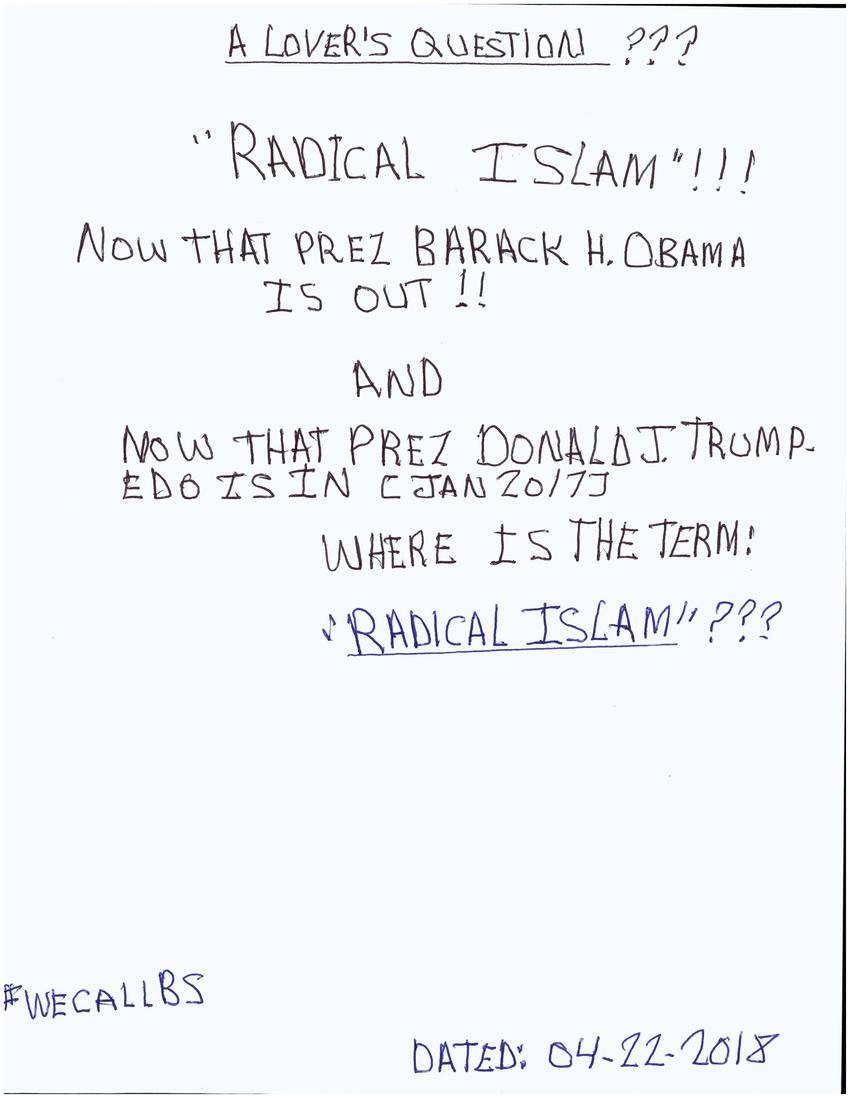 A LOVER'S QUESTION ???
"RADICAL ISLAM"!!!
NOW THAT PREZ BARACK H. OBAMA
IS OUT !!
AND
NOW THAT PREZ DONALD J. TRUMP-
EDO IS IN [JAN 2017]
WHERE IS THE TERM:
"RADICAL ISLAM"???
#WECALLBS
DATED: 04-22-2018